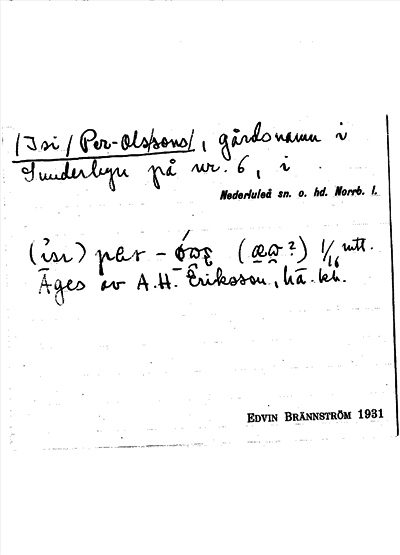 /Isi/ Per-Olssons/, gårdsnamn i
Sunderbyn på nr. 6, i
Nederluleå sn. o. hd. Norrb. l.
(isi) per - (?) 1/16 mtl.
Äges av A.H. Eriksson, hä. kh.
EDVIN BRÄNNSTRÖM 1931